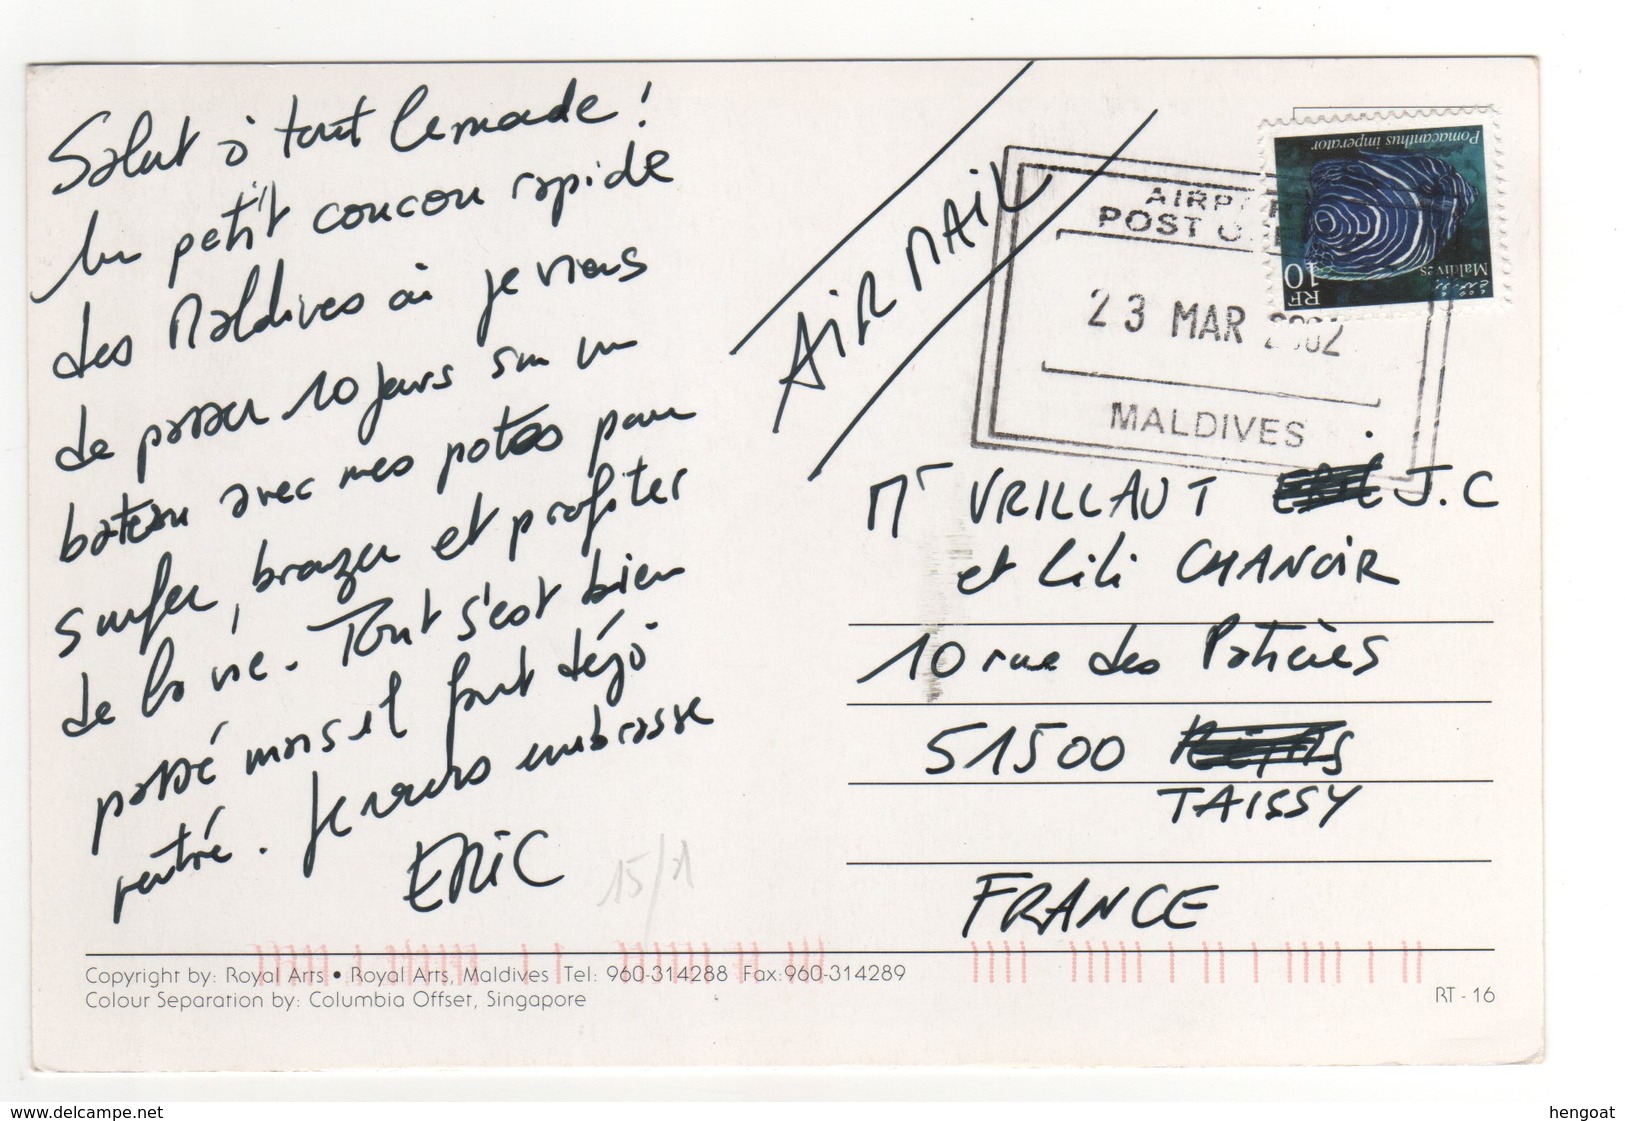 Salut à tout le monde !
Un petit coucou rapide
des Maldives où je viens
de passer 10 jours sur un
bateau avec mes potes pour
surfer, bronzer et profiter
de la vie. Tout s'est bien
passé mais il faut déjà
rentré. Je vous embrasse
ERIC
15/1
AIR MAIL
AIRP
POST O
23 MAR 2002
MALDIVES
Pomacanthus imperator
Maldives
10 RF
Mr VRILLAUT J.C
et Lili CHANOIR
10 rue des Patières
51500 Reims
TAISSY
FRANCE
Copyright by: Royal Arts • Royal Arts, Maldives Tel: 960-314288 Fax:960-314289
Colour Separation by: Columbia Offset, Singapore
RT - 16
www.delcampe.net
hengoat